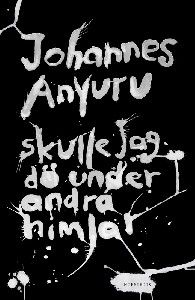 Johannes
Anyuru
skulle jag
dö under
andra
himlar
NORSTEDTS